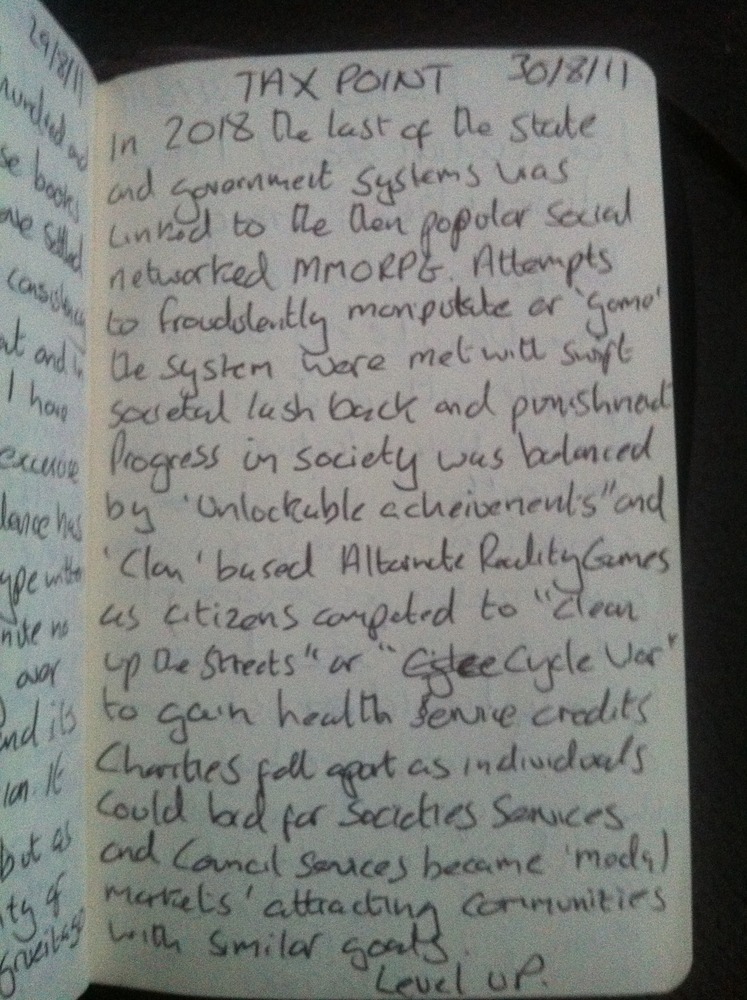 29/8/11
hundred and
se books
ove settled
consistency
at and in
I have
excuse
dance has
ype within
nite no
over
and its
ion. It
but as
ity of
TAX POINT 30/8/11
In 2018 the last of the state
and government systems was
Linked to the then popular social
networked MMORPG. Attempts
to fraudulently manipulate or 'game'
the system were met with swift
societal lash back and punishment
Progress in society was balanced
by 'Unlockable acheivements" and
'Clan' based Alternate Reality Games
as citizens competed to "clean
up the streets" or "Cycle War"
to gain health service credits
Charities fell apart as individuals
could bid for Societies Services
and Council Services became 'modal
markets' attracting communities
with similar goals.
Level UP.